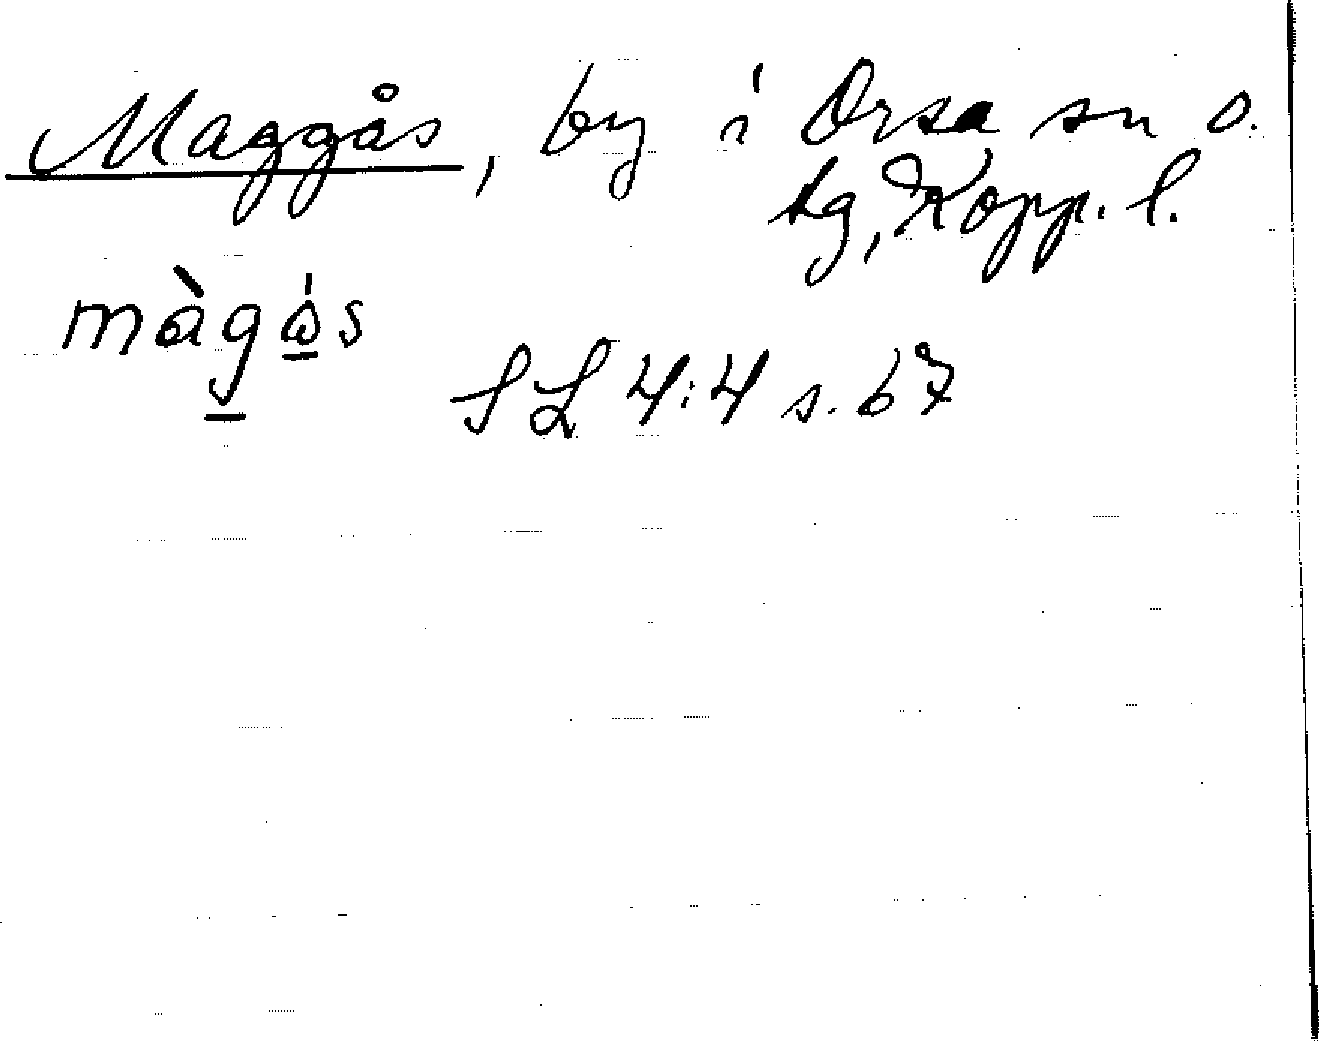 Maggås, by i Orsa sn o.
tg, Kopp. l.
màg̱ǻ̱s
SL 4:4 s. 67